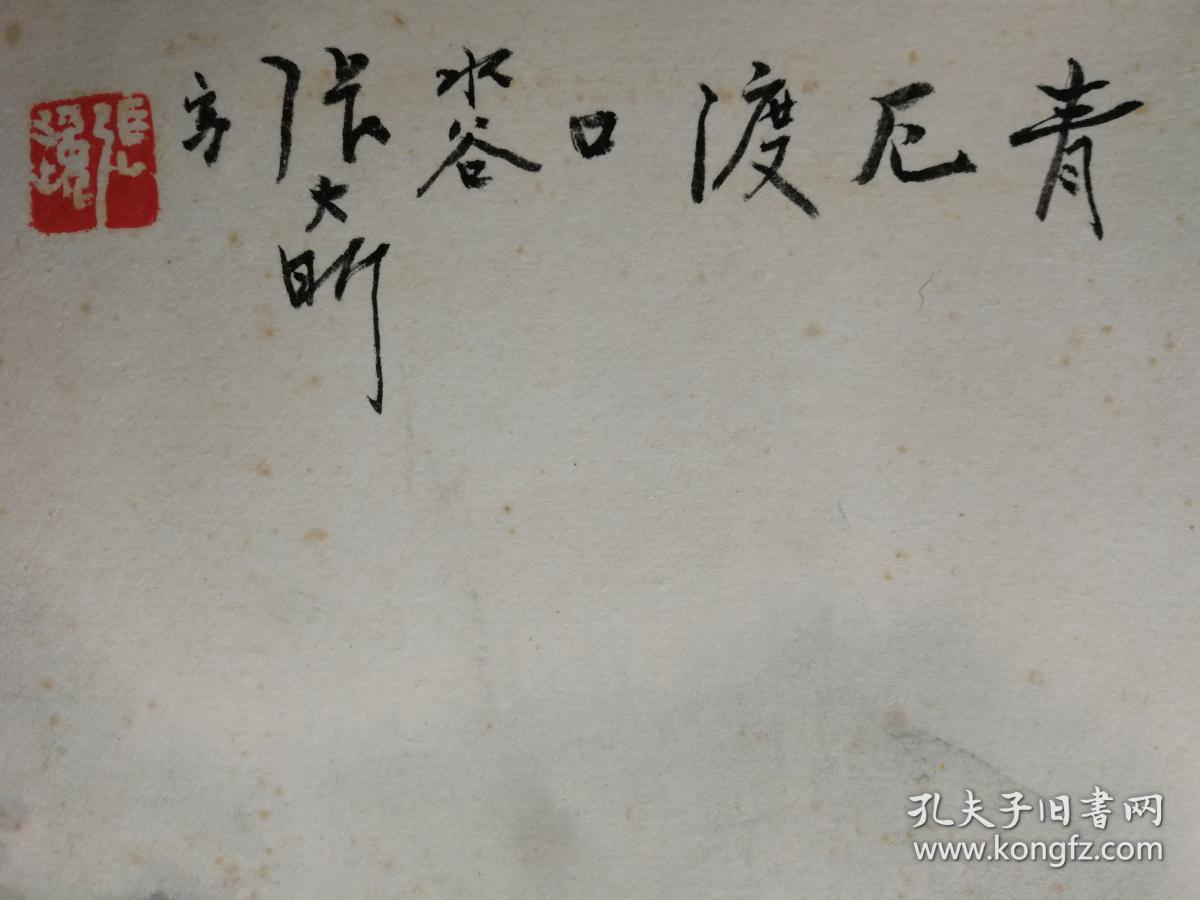 青厄渡口
水谷
张大昕
写
孔夫子旧书网
www.kongfz.com